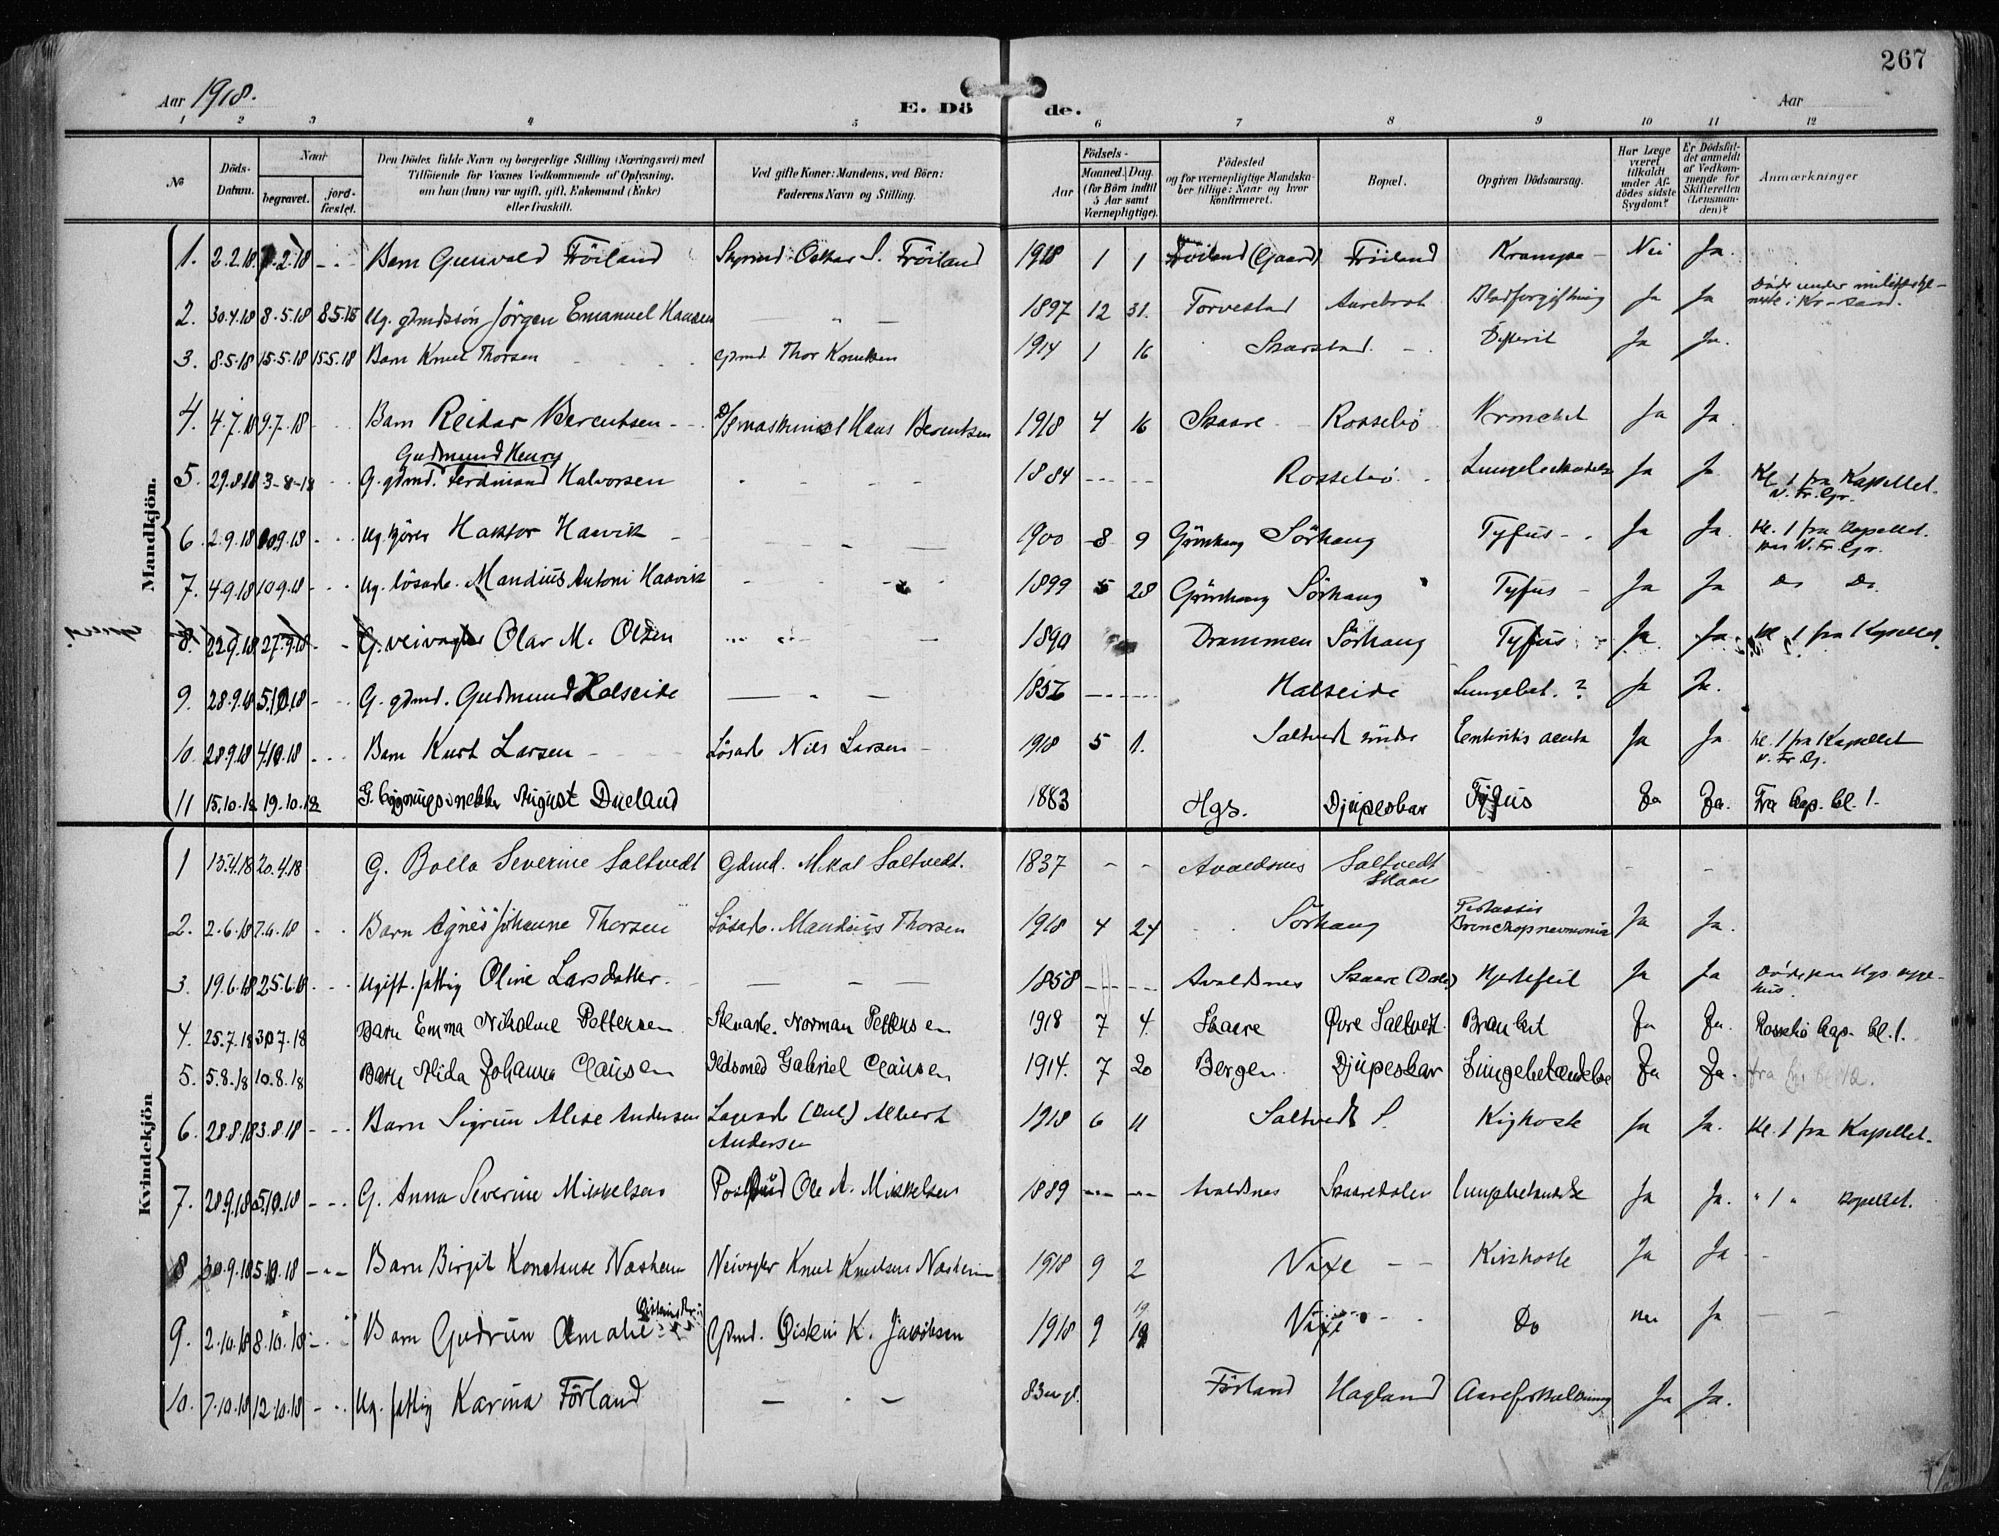 267
Aar 1918.
E. Döde.
Aar
1 2 3 4 5 6 7 8 9 10 11 12
No
Döds-Datum.
Naar
begravet.
jord-fæstet.
Den Dödes fulde Navn og borgerlige Stilling (Næringsvei) med
Tilföiende for Voxnes Vedkommende af Oplysning,
om han (hun) var ugift, gift, Enkemand (Enke)
eller fraskilt.
Ved gifte Koner: Mandens, ved Börn:
Faderens Navn og Stilling.
Födsels-
Aar
Maaned. Dag.
(for Börn indtil
5 Aar samt
Værnepligtige).
Födested
og for værnepligtige Mandska-
ber tillige: Naar og hvor
konfirmeret.
Bopæl.
Opgiven Dödsaarsag.
Har Læge
været
tilkaldt
under Af-
dödes sidste
Sygdom?
Er Dödsfal-
det anmeldt
af Vedkom-
mende for
Skifteretten
(Lensman-
den)?
Anmærkninger
Mandkjön.
1. 2.2.18 Barn Gunvald Fröiland Oskar S. Fröiland 1918 1 1 Fröiland (Gaard) Fröiland Krampe Nei Ja.
2. 30.4.18 8.5.18 8.5.18 Ug. gdmdssön Jörgen Emanuel Hansen — " — 1897 12 31. Torvestad Blodforgiftning Ja Ja Döde under
3. 8.5.18 15.5.18 15.5.18 Barn Knut Thorsen Gdmd. Thor Knutsen 1914 1 16 Skarstad Difterit Ja Ja.
4. 4.7.18 9.7.18 Barn Reidar Berentsen D/S maskinist Hans Berentsen 1918 4 16 Skaare Rossebö Bronchit Ja Ja.
Gudmund Henry
5. 29.8.18 3-8-18 G. gdmd. Ferdinand Halvorsen 1884 Rossebö Ja Ja Kl. 1 fra Kapellet.
V. Fr. Gr.
6. 2.9.18 Ug. Haktor Haavik 1900 8 9 Grönhaug Sörhaug Tyfus Ja Ja. Kl. 1 fra Kapellet.
V. Fr. Gr.
7. 4.9.18 10.9.18 Ug. lösarb. Mandius Antoni Haavik 1899 5 28 Grönhaug Sörhaug Tyfus Ja Ja Do Do.
8. 22.9.18 27.9.18 G. Olav M. Olsen 1890 Drammen Sörhaug Tyfus Ja Ja Kl. 1 fra Kapellet.
9. 28.9.18 5.10.18 G. gdmd. Gudmund Halseide — " — Halseide Lungebet. ? Ja Ja.
10. 28.9.18 4.10.18 Barn Kurt Larsen Lösarb. Nils Larsen 1918 5 1. Saltvedt Enteritis acuta Ja Ja Kl. 1 fra Kapellet
V. Fr. G.
11 15.10.18 19.10.18 G. August Dueland 1883 Hgs. Djupeskar Tyfus Ja Ja. Fra kap. kl. 1.
Kvindekjön
1 13.4.18 20.4.18 G. Bolla Severine Saltvedt Gdmd. Mikal Saltvedt. 1837 - - Avaldsnes Saltvedt
Skaare
2. 2.6.18 Barn Agnes Johanne Thorsen Lösarb. Mandius Thorsen 1918 4 24 Sörhaug Pertussis
Bronchopneumonia Ja Ja.
3. 19.6.18 25.6.18 Ugift. fattig Oline Larsdatter. 1858 Avaldsnes Skaare Hjertefeil Ja Ja Döde paa Hgs syge-
hus.
4. 25.7.18 30.7.18 Barn Emma Nikoline Pettersen Norman Pettersen 1918 7 4. Skaare Øvre Saltvedt. Ja Ja. Rossebö kap. kl. 1.
5. 5.8.18 10.8.18 Barn Alida Johanna Clausen Gabriel Clausen 1914. 7 20 Bergen Djupeskar Lungebetændelse Ja Ja.
6. 28.8.18 3.8.18 Barn Sigrun Alise Andersen Albert
Andersen 1918 6 11 Saltvedt S. Kighoste Ja Ja. Kl. 1 fra Kapellet.
7. 28.9.18 5.10.18 G. Anna Severine Mikkelsen Ole A. Mikkelsen 1889 Avaldsnes Skaaredalen Ja Ja. " 1 " kapellet.
8 30.9.18 5.10.18 Barn Birgit Konstanse Nesheim Knut Knutsen Nesheim 1918 9 2 Vixe Kikhoste Ja Ja
9. 2.10.18 8.10.18 Barn Gudrun Amalie Gdmd. Øistein K. Jacobsen 1918 9 Vixe Do nei Ja
10. 7.10.18 12.10.18 Ug. fattig Karina Förland — " — Förland Hagland Aareforkalkning Ja Ja.